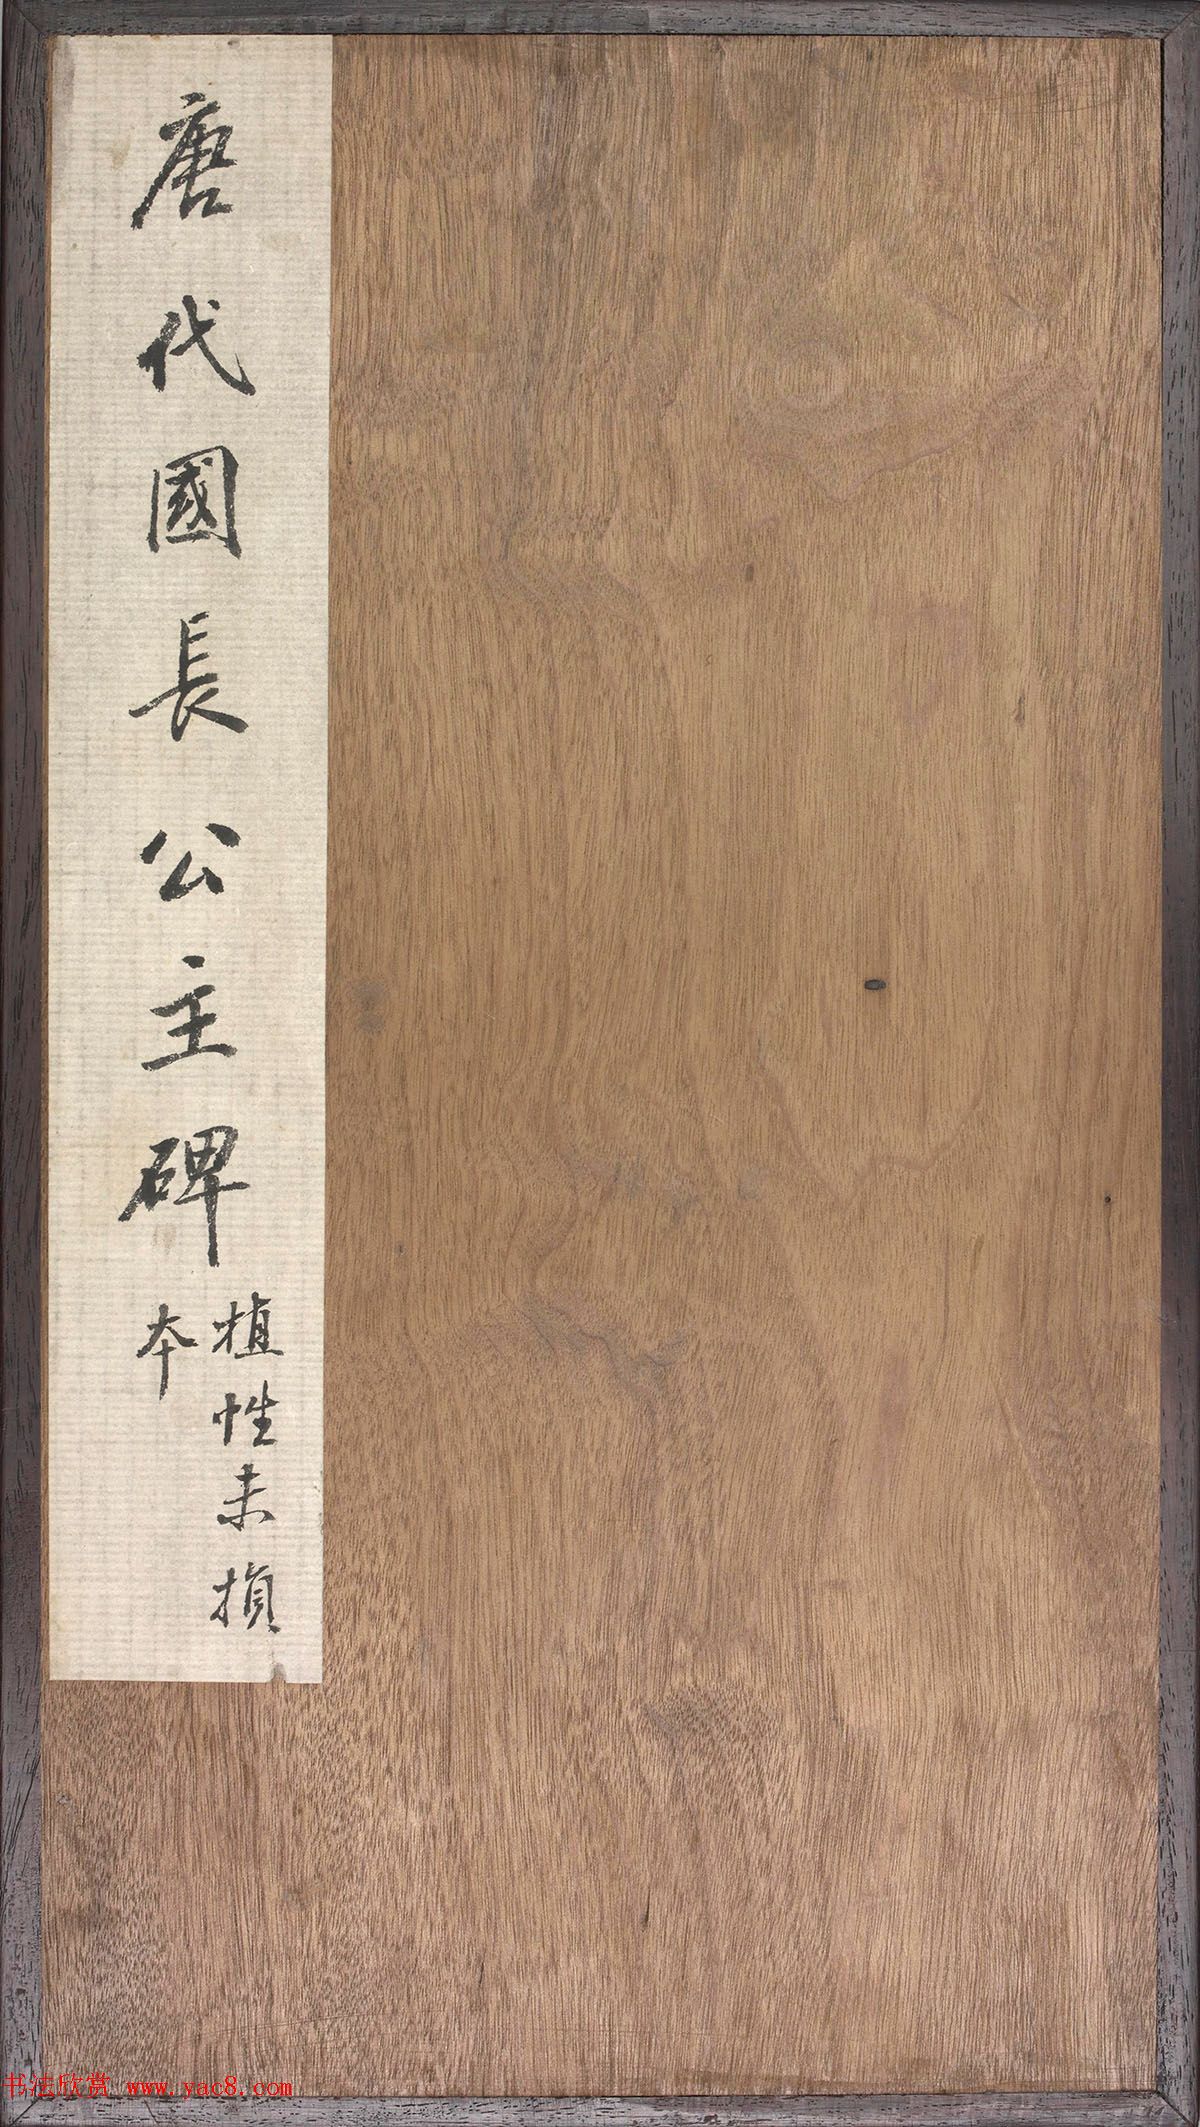 唐代國長公主碑
植性未損
本
书法欣赏 www.yac8.com